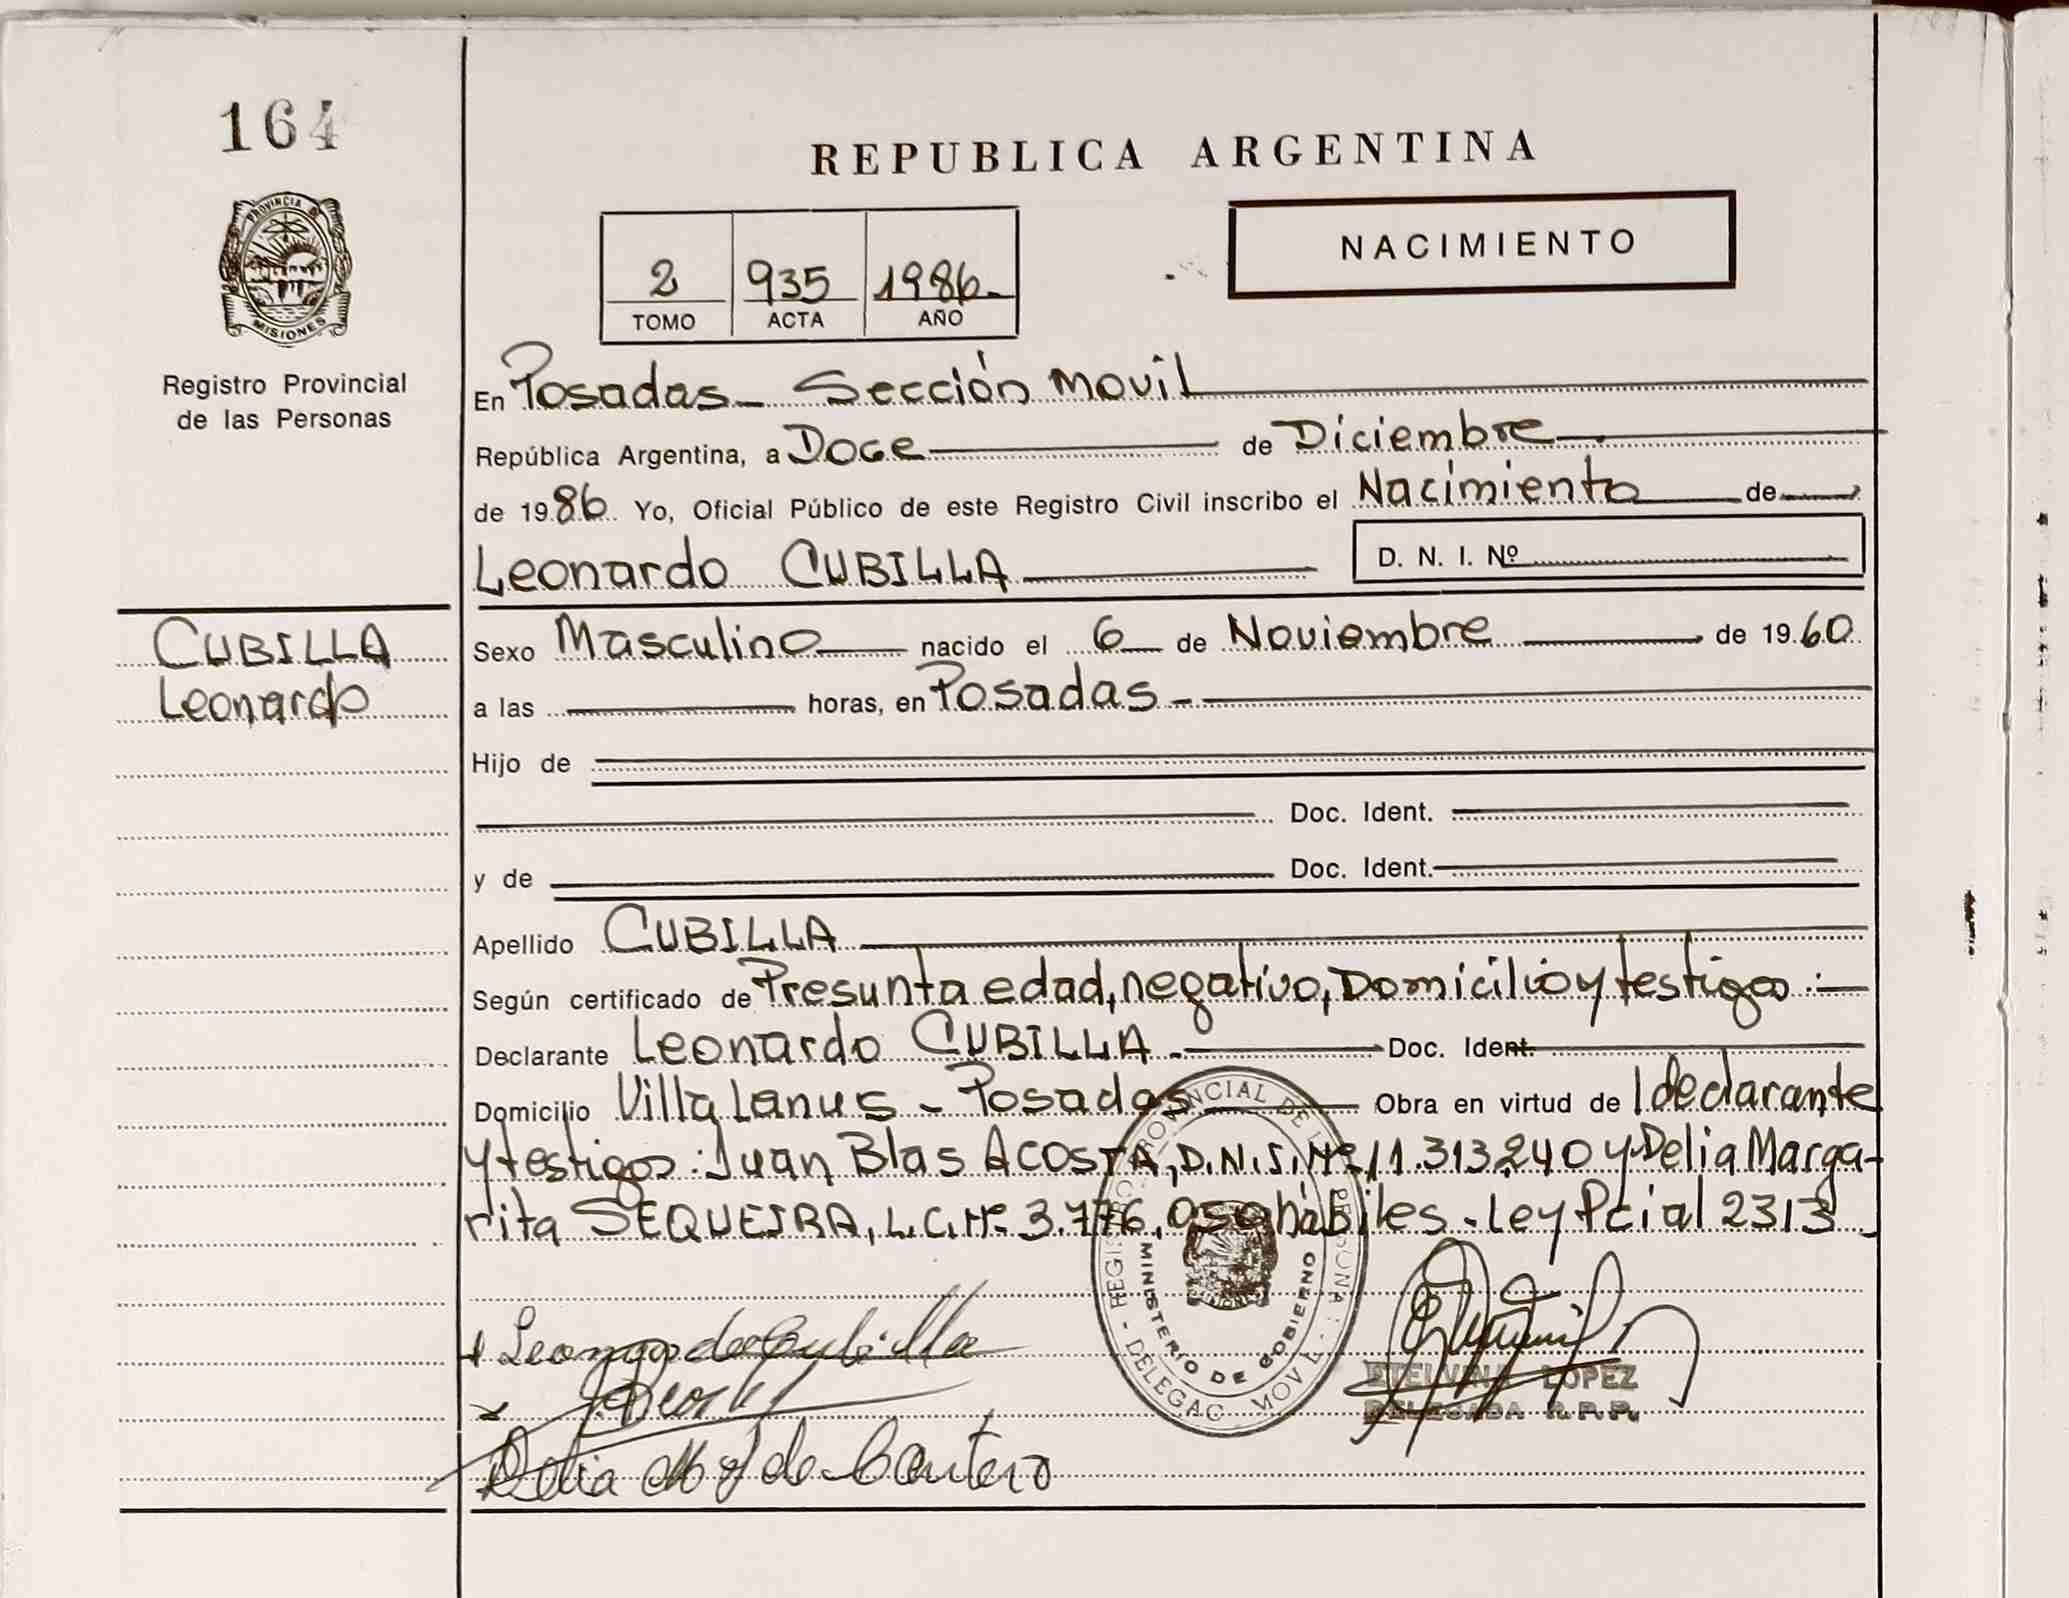 164
REPUBLICA ARGENTINA
PROVINCIA DE
MISIONES
Registro Provincial
de las Personas
2 935 1986
TOMO ACTA AÑO
NACIMIENTO
En Posadas - Sección Movil
República Argentina, a Doce de Diciembre
de 1986 Yo, Oficial Público de este Registro Civil inscribo el Nacimiento de
Leonardo CUBILLA D. N. I. Nº
CUBILLA
Leonardo
Sexo Masculino nacido el 6 de Noviembre de 1960
a las horas, en Posadas -
Hijo de
Doc. Ident.
y de Doc. Ident.
Apellido CUBILLA
Según certificado de Presunta edad, negativo, Domicilio y testigos:
Declarante Leonardo CUBILLA - Doc. Ident.
Domicilio Villa Lanus - Posadas Obra en virtud de l declarante
y testigos: Juan Blas ACOSTA, D.N.I. Nº 11.313.240 y Delia Marga-
rita SEQUEIRA, L.C. Nº 3.776.050 hábiles - Ley Pcial 2313
REGISTRO PROVINCIAL DE LAS PERSONAS
MINISTERIO DE GOBIERNO
DELEGAC. MOVIL
Leonardo Cubilla
Delia M S de Cantero
ETELVINA LOPEZ
DELEGADA R.P.P.